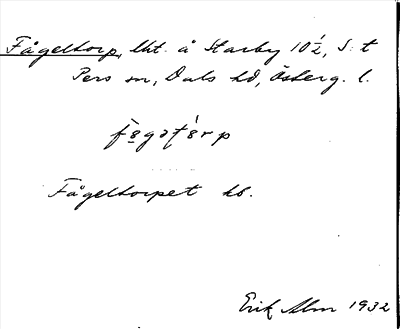 Fågeltorp, lht. å Starby 10½, S:t
Pers sn, Dals hd, Österg. l.
Fågeltorpet kb.
Erik Alm 1932